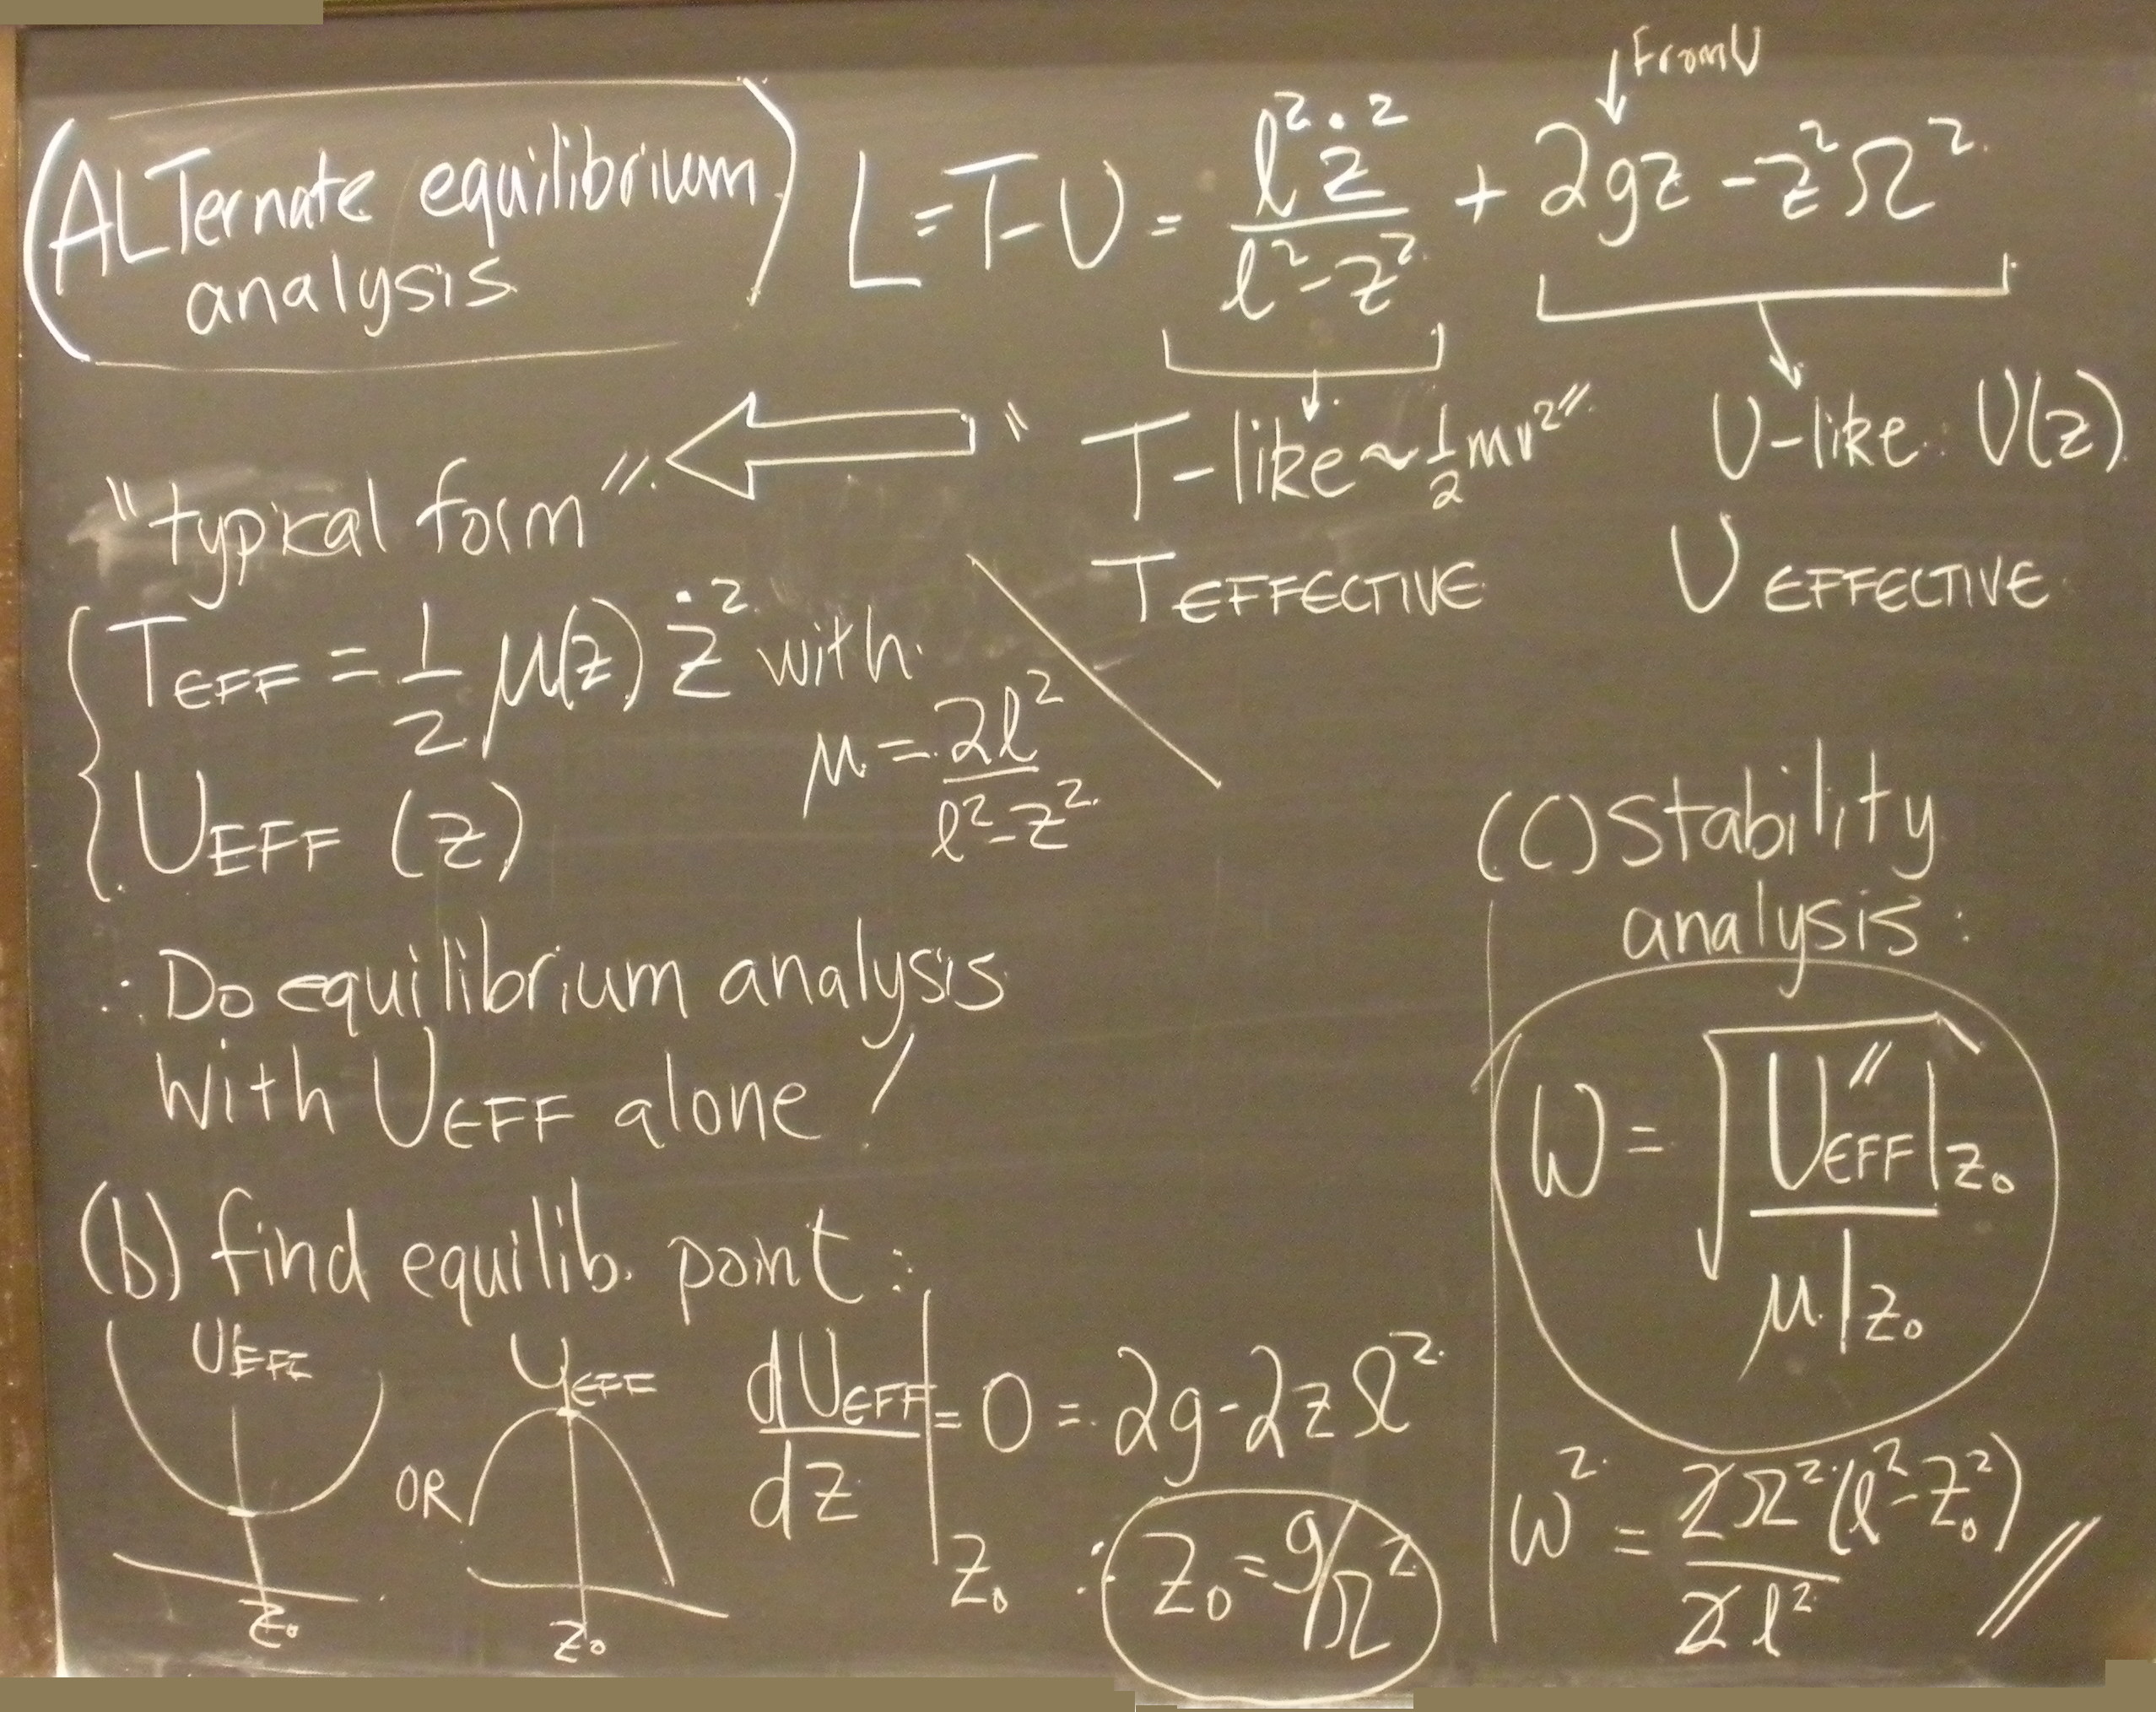 (ALTernate equilibrium analysis)
L = T-U = l²ż²/(l²-z²) + 2gz - z²Ω²
↓ From U
"T-like ~ ½mv²"
U-like: U(z)
T EFFECTIVE
U EFFECTIVE
"typical form"
T_EFF = 1/2 μ(z) ż² with
μ = 2l²/(l²-z²)
U_EFF (z)
∴ Do equilibrium analysis
with U_EFF alone!
(b) find equilib. point:
U_EFF
z₀
OR
U_EFF
z₀
dU_EFF/dz |z₀ = 0 = 2g - 2zΩ²
∴ z₀ = g/Ω²
(C) Stability
analysis:
ω = √(U″_EFF|z₀ / μ|z₀)
ω² = 2Ω²(l²-z₀²)/2l² //